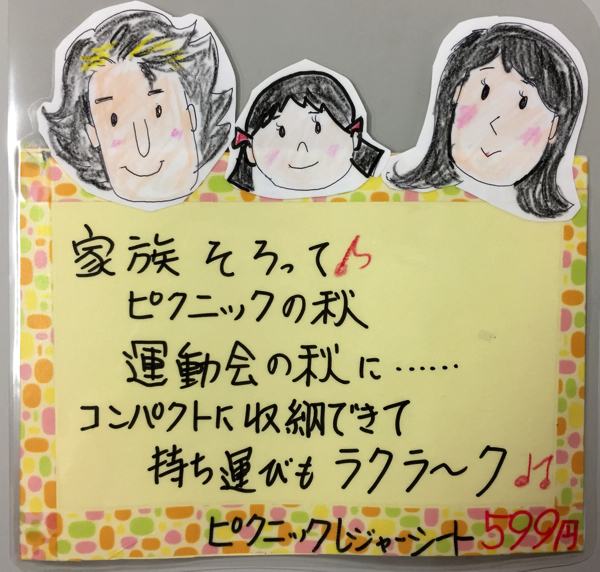 家族 そろって♪
ピクニックの秋
運動会の秋に……
コンパクトに収納できて
持ち運びも ラクラ〜ク♫
ピクニックレジャーシート 599円